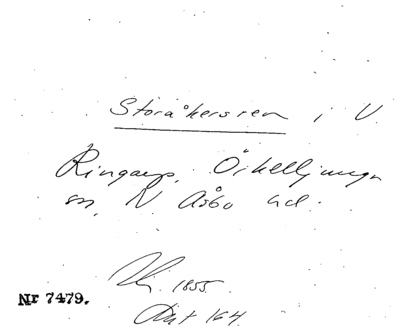 Storåkersren i V.
Ringarp, Örkelljunga
sn, N. Åsbo hd.
1855.
Akt 164.
Nr 7479.